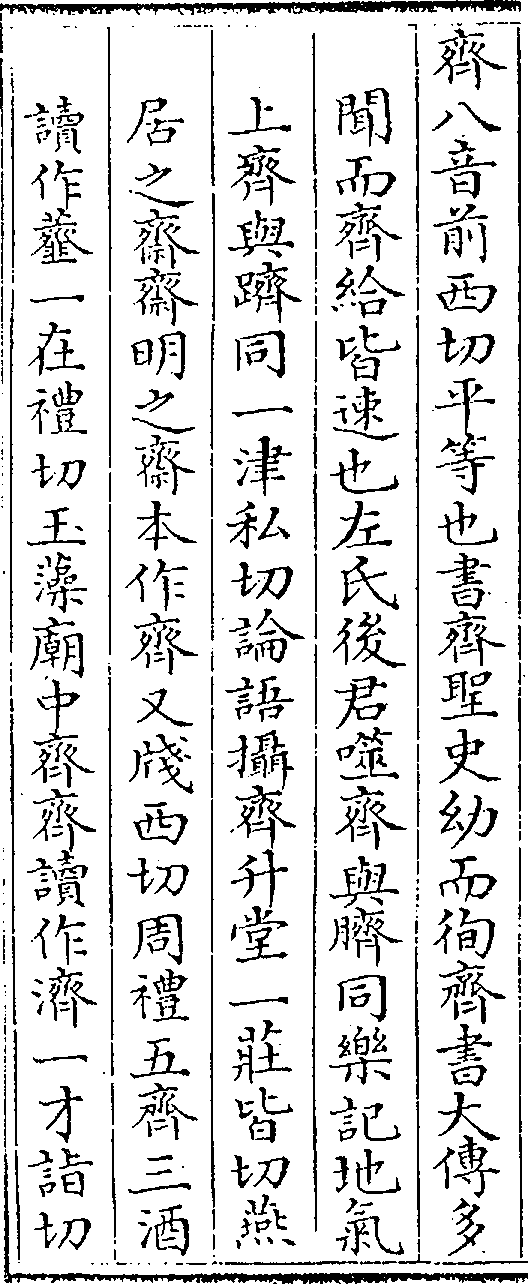 齊八音前西切平等也書齊聖史幼而徇齊書大傳多
聞而齊給皆速也左氏後君噬齊與臍同樂記地氣
上齊與躋同一津私切論語攝齊升堂一莊皆切燕
居之齋齋明之齋本作齊又牋西切周禮五齊三酒
讀作虀一在禮切玉藻廟中齊齊讀作濟一才詣切